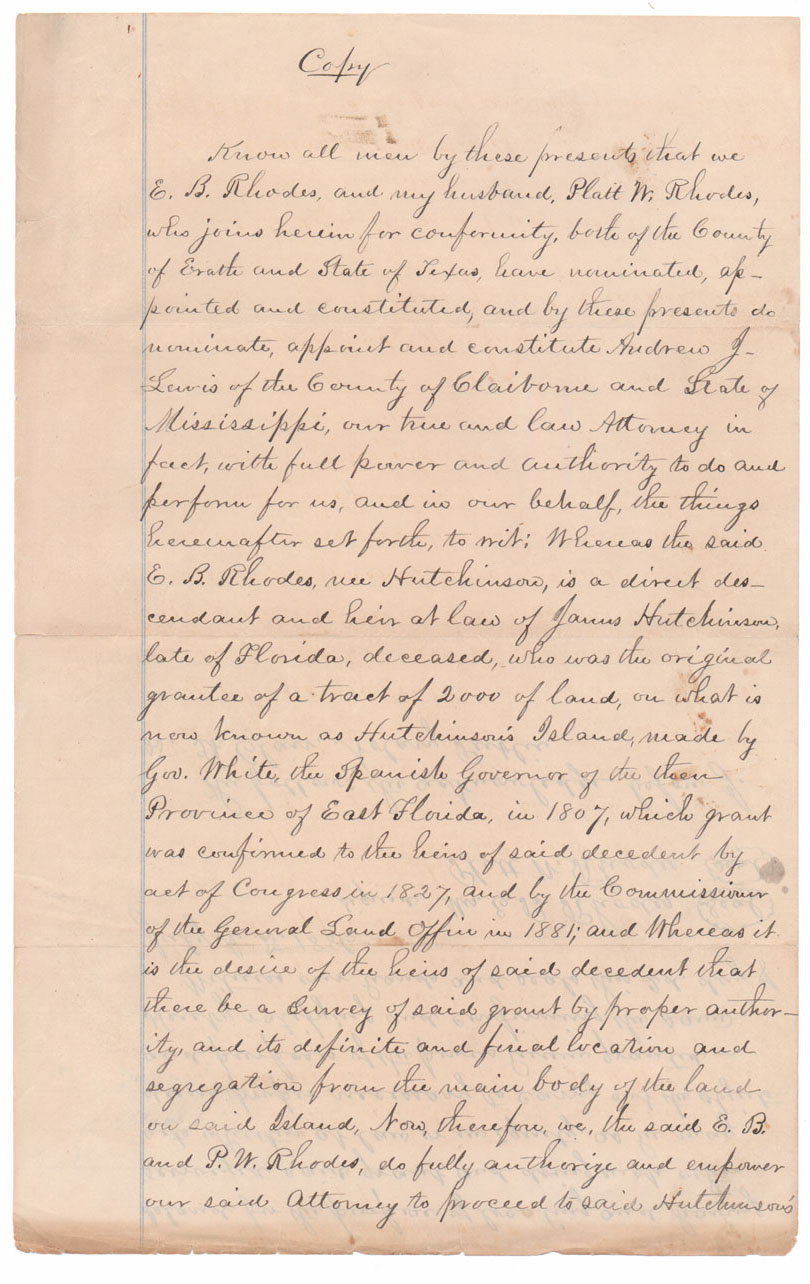 Copy
Know all men by these presents that we
E. B. Rhodes, and my husband, Platt W. Rhodes,
who joins herein for conformity, both of the County
of Erath and State of Texas, have nominated, ap-
pointed and constituted, and by these presents do
nominate, appoint and constitute Andrew J.
Lewis of the County of Claiborne and State of
Mississippi, our true and law Attorney in
fact, with full power and authority to do and
perform for us, and in our behalf, the things
hereinafter set forth, to wit: Whereas the said
E. B. Rhodes, nee Hutchinson, is a direct des-
cendant and heir at law of James Hutchinson,
late of Florida, deceased, who was the original
grantee of a tract of 2000 of land, on what is
now known as Hutchinson's Island, made by
Gov. White, the Spanish Governor of the then
Province of East Florida, in 1807, which grant
was confirmed to the heirs of said decedent by
act of Congress in 1827, and by the Commissioner
of the General Land Office in 1881; and Whereas it
is the desire of the heirs of said decedent that
there be a survey of said grant by proper author-
ity, and its definite and final location and
segregation from the main body of the land
on said Island, Now, therefore, we, the said E. B.
and P. W. Rhodes, do fully authorize and empower
our said Attorney to proceed to said Hutchinson's